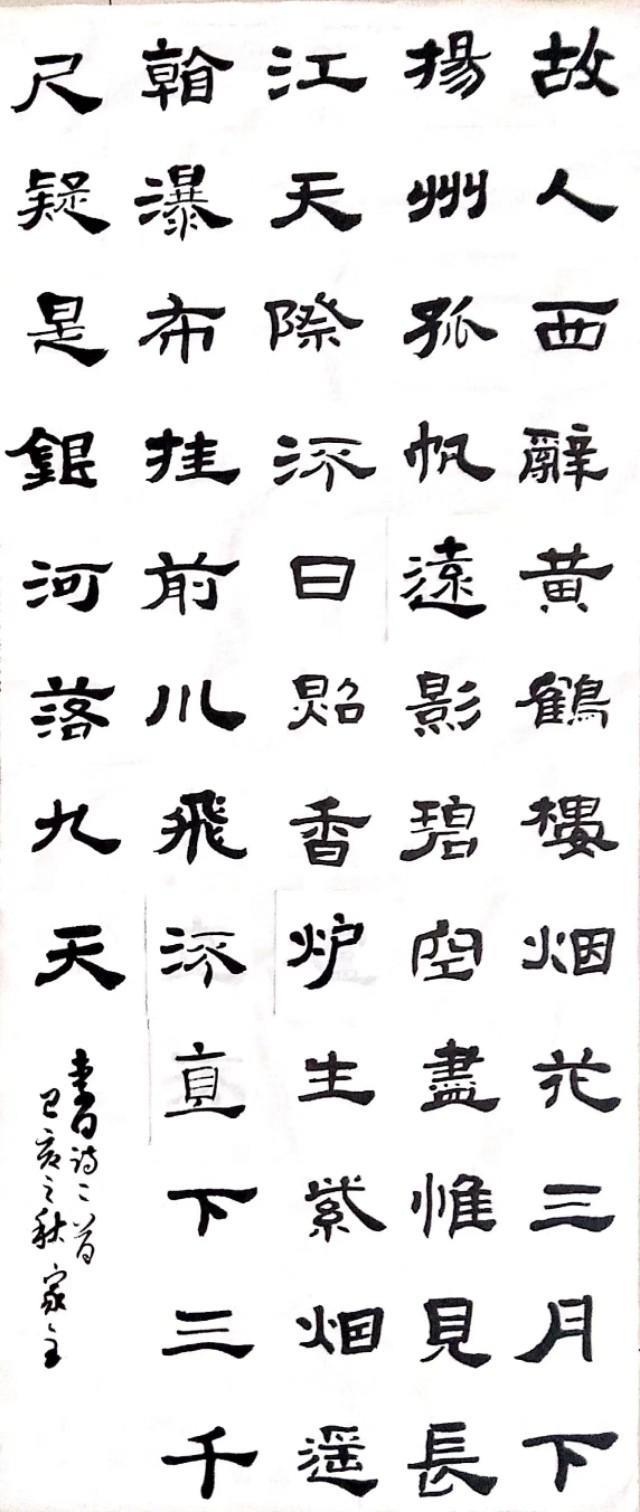 故人西辭黃鶴樓烟花三月下
揚州孤帆遠影碧空盡惟見長
江天際流日照香炉生紫烟遥
看瀑布挂前川飛流直下三千
尺疑是銀河落九天
書詩二首
己亥之秋 家主